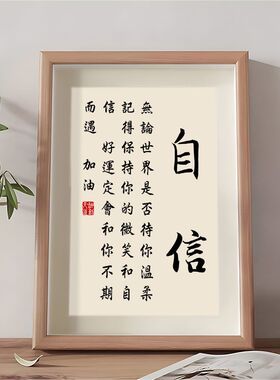 自信
無論世界是否待你溫柔
記得保持你的微笑和自
信 好運定會和你不期
而遇 加油